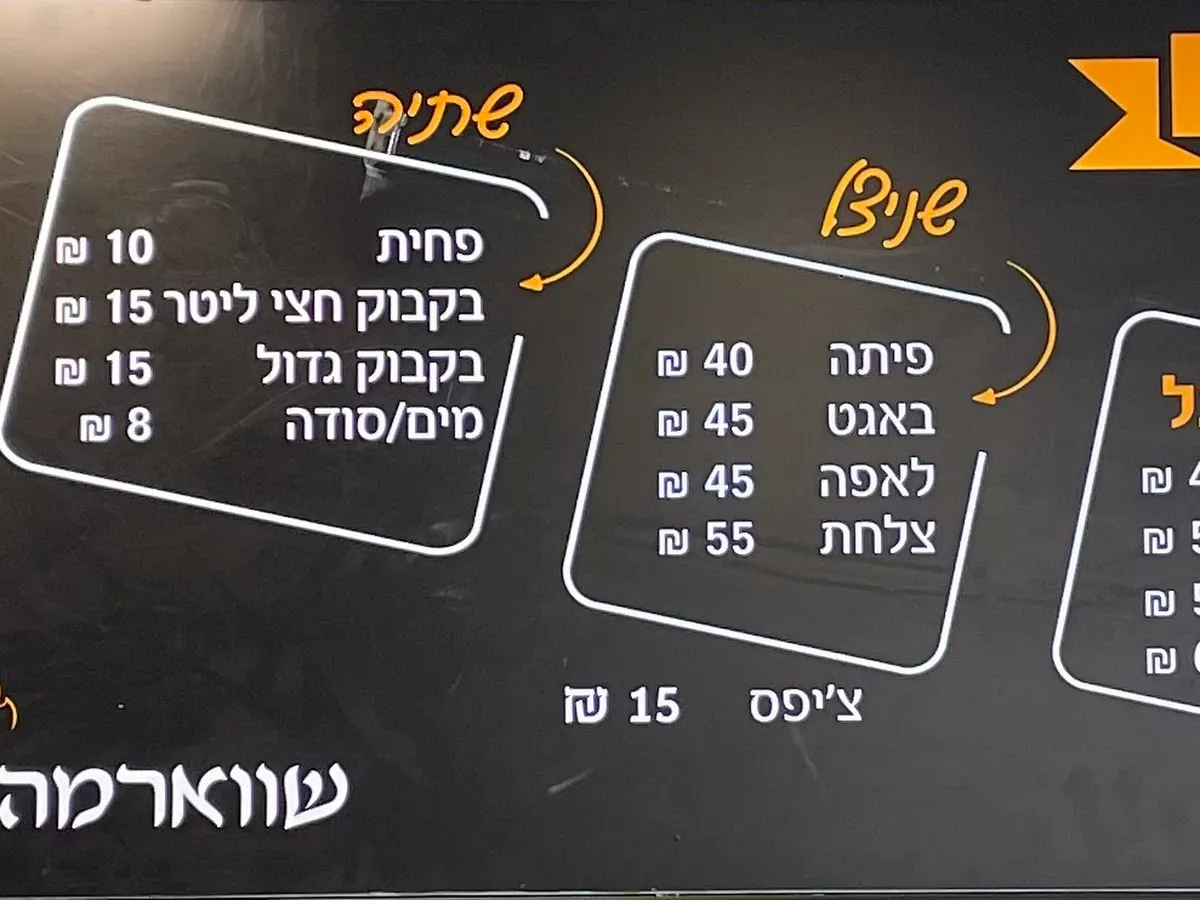 שתיה
פחית 10 ₪
בקבוק חצי ליטר 15 ₪
בקבוק גדול 15 ₪
מים/סודה 8 ₪
שניצל
פיתה 40 ₪
באגט 45 ₪
לאפה 45 ₪
צלחת 55 ₪
צ'יפס 15 ₪
שווארמה